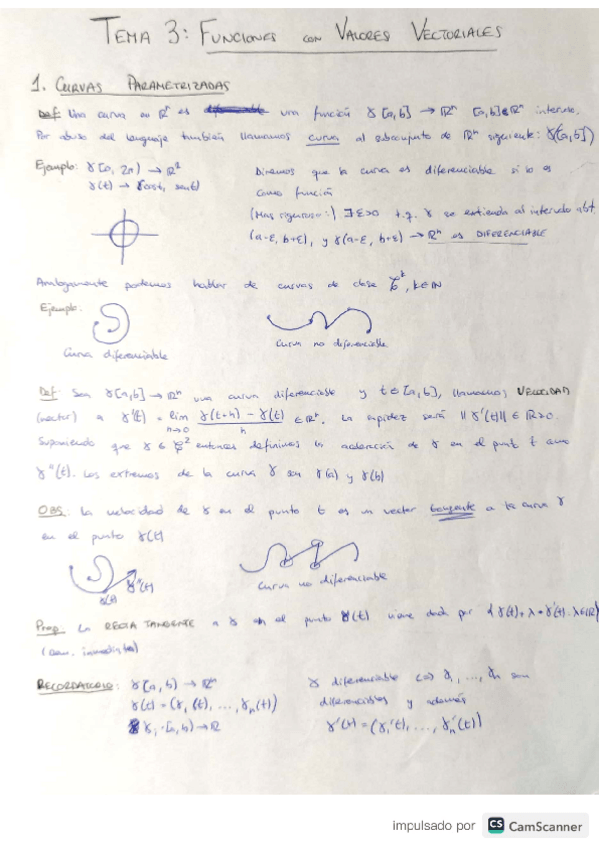 TEMA 3: FUNCIONES CON VALORES VECTORIALES
1. CURVAS PARAMETRIZADAS
Def: Una curva en ℝⁿ es una función γ[a,b] → ℝⁿ [a,b]∈ℝⁿ intervalo.
Por abuso del lenguaje también llamamos curva al subconjunto de ℝⁿ siguiente: γ([a,b])
Ejemplo: γ[0, 2π) → ℝ²
γ(t) → (cost, sent)
Diremos que la curva es diferenciable si lo es
como función
(Mas riguroso:) ∃ε>0 t.q. γ se extienda al intervalo abt.
(a-ε, b+ε), y γ(a-ε, b+ε) → ℝⁿ es DIFERENCIABLE
Analogamente podemos hablar de curvas de clase ℰᵏ, k∈ℕ
Ejemplo:
Curva diferenciable
Curva no diferenciable
Def: Sea γ[a,b] → ℝⁿ una curva diferenciable y t∈[a,b], llamamos VELOCIDAD
(vector) a γ'(t) = lim h→0 γ(t+h) - γ(t) / h ∈ ℝⁿ. La rapidez será ||γ'(t)|| ∈ ℝ≥0.
Suponiendo que γ ∈ ℰ² entonces definimos la aceleración de γ en el punt t como
γ''(t). Los extremos de la curva γ son γ(a) y γ(b)
OBS: La velocidad de γ en el punto t es un vector tangente a la curva γ
en el punto γ(t)
γ(t)
γ'(t)
Curva no diferenciable
Prop: La RECTA TANGENTE a γ en el punto γ(t) viene dada por {γ(t) + λ·γ'(t): λ∈ℝ}
(Dem. inmediata)
RECORDATORIO: γ[a,b) → ℝⁿ
γ(t) = (γ₁(t), ..., γₙ(t))
γᵢ: [a,b) → ℝ
γ diferenciable <=> γ₁, ..., γₙ son
diferenciables y además
γ'(t) = (γ₁'(t), ..., γₙ'(t))
impulsado por CS CamScanner